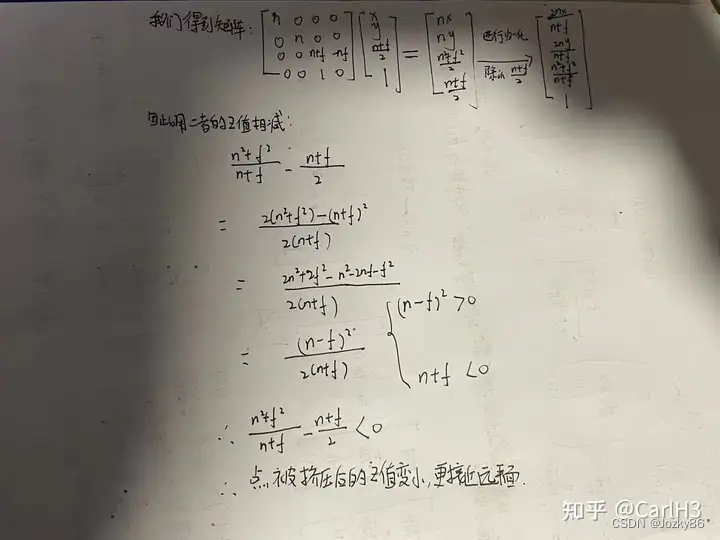 我们得到矩阵: [n 0 0 0; 0 n 0 0; 0 0 n+f -nf; 0 0 1 0] [x; y; n+f/2; 1] = [nx; ny; n²+f²/2; n+f/2] 进行归一化 除以 n+f/2 → [2nx/n+f; 2ny/n+f; n²+f²/n+f; 1]
的二者的Z值相减:
n²+f²/n+f - n+f/2
= 2(n²+f²)-(n+f)²/2(n+f)
= 2n²+2f²-n²-2nf-f²/2(n+f)
= (n-f)²/2(n+f) { (n-f)²>0
n+f<0
∴ n²+f²/n+f - n+f/2 <0
∴ 点被挤压后的Z值变小,更接近远平面.
知乎 @CarlH3
CSDN @Jozky86